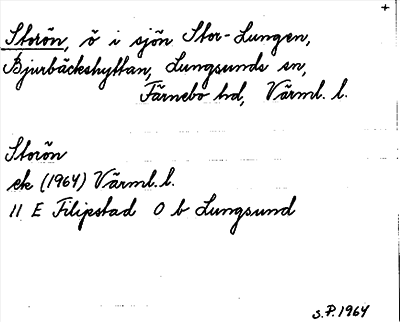 +
Storön, ö i sjön Stor-Lungen,
Bjurbäckshyttan, Lungsunds sn,
Färnebo hd, Värml. l.
Storön
ek (1964) Värml. l.
11 E Filipstad O b Lungsund
S.P. 1964